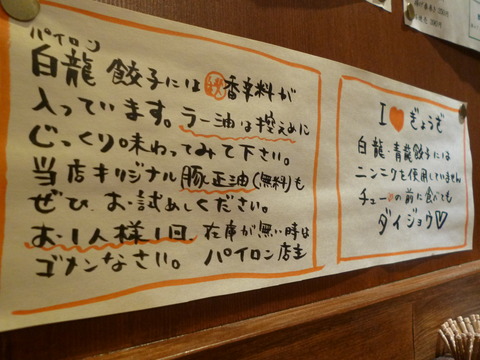 パイロン
白龍 餃子には 香辛料が
入っています。ラー油は控えめに
じっくり味わってみて下さい。
当店オリジナル 豚正油(無料)も
ぜひ、お試めしください。
お1人様1皿 在庫が無い時は
ゴメンなさい。 パイロン店主
I ♥ ぎょうざ
白龍・青龍餃子には
ニンニクを使用していません
チューの前に食べても
ダイジョウ♡